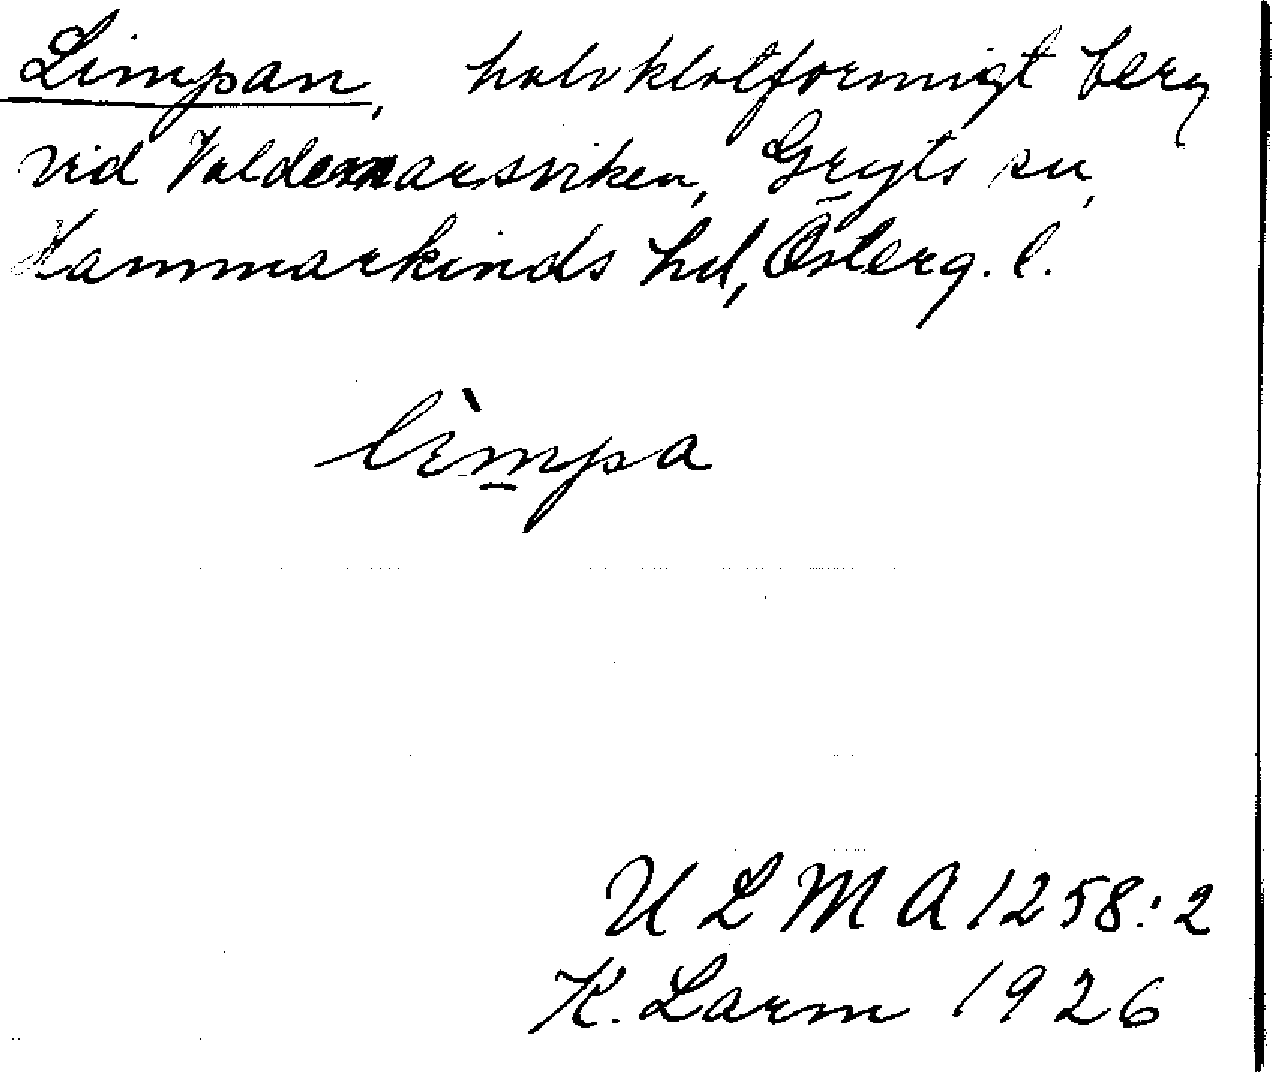 Limpan, halvklotformigt berg
vid Valdemarsviken, Gryts sn,
Hammarkinds hd, Österg. l.
lìmpa
U L M A 1258:2
K. Larm 1926